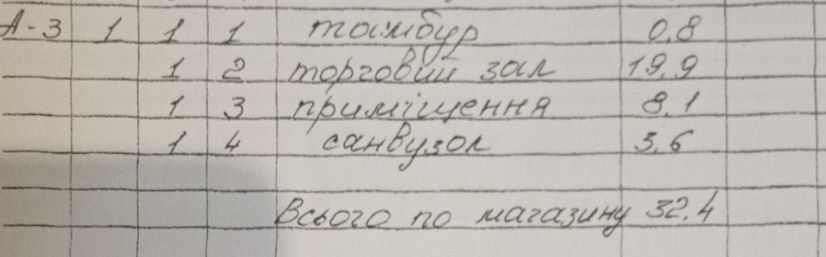 А-3 1 1 1 тамбур 0.8
1 2 торговий зал 19.9
1 3 приміщення 8.1
1 4 санвузол 3.6
Всього по магазину 32.4